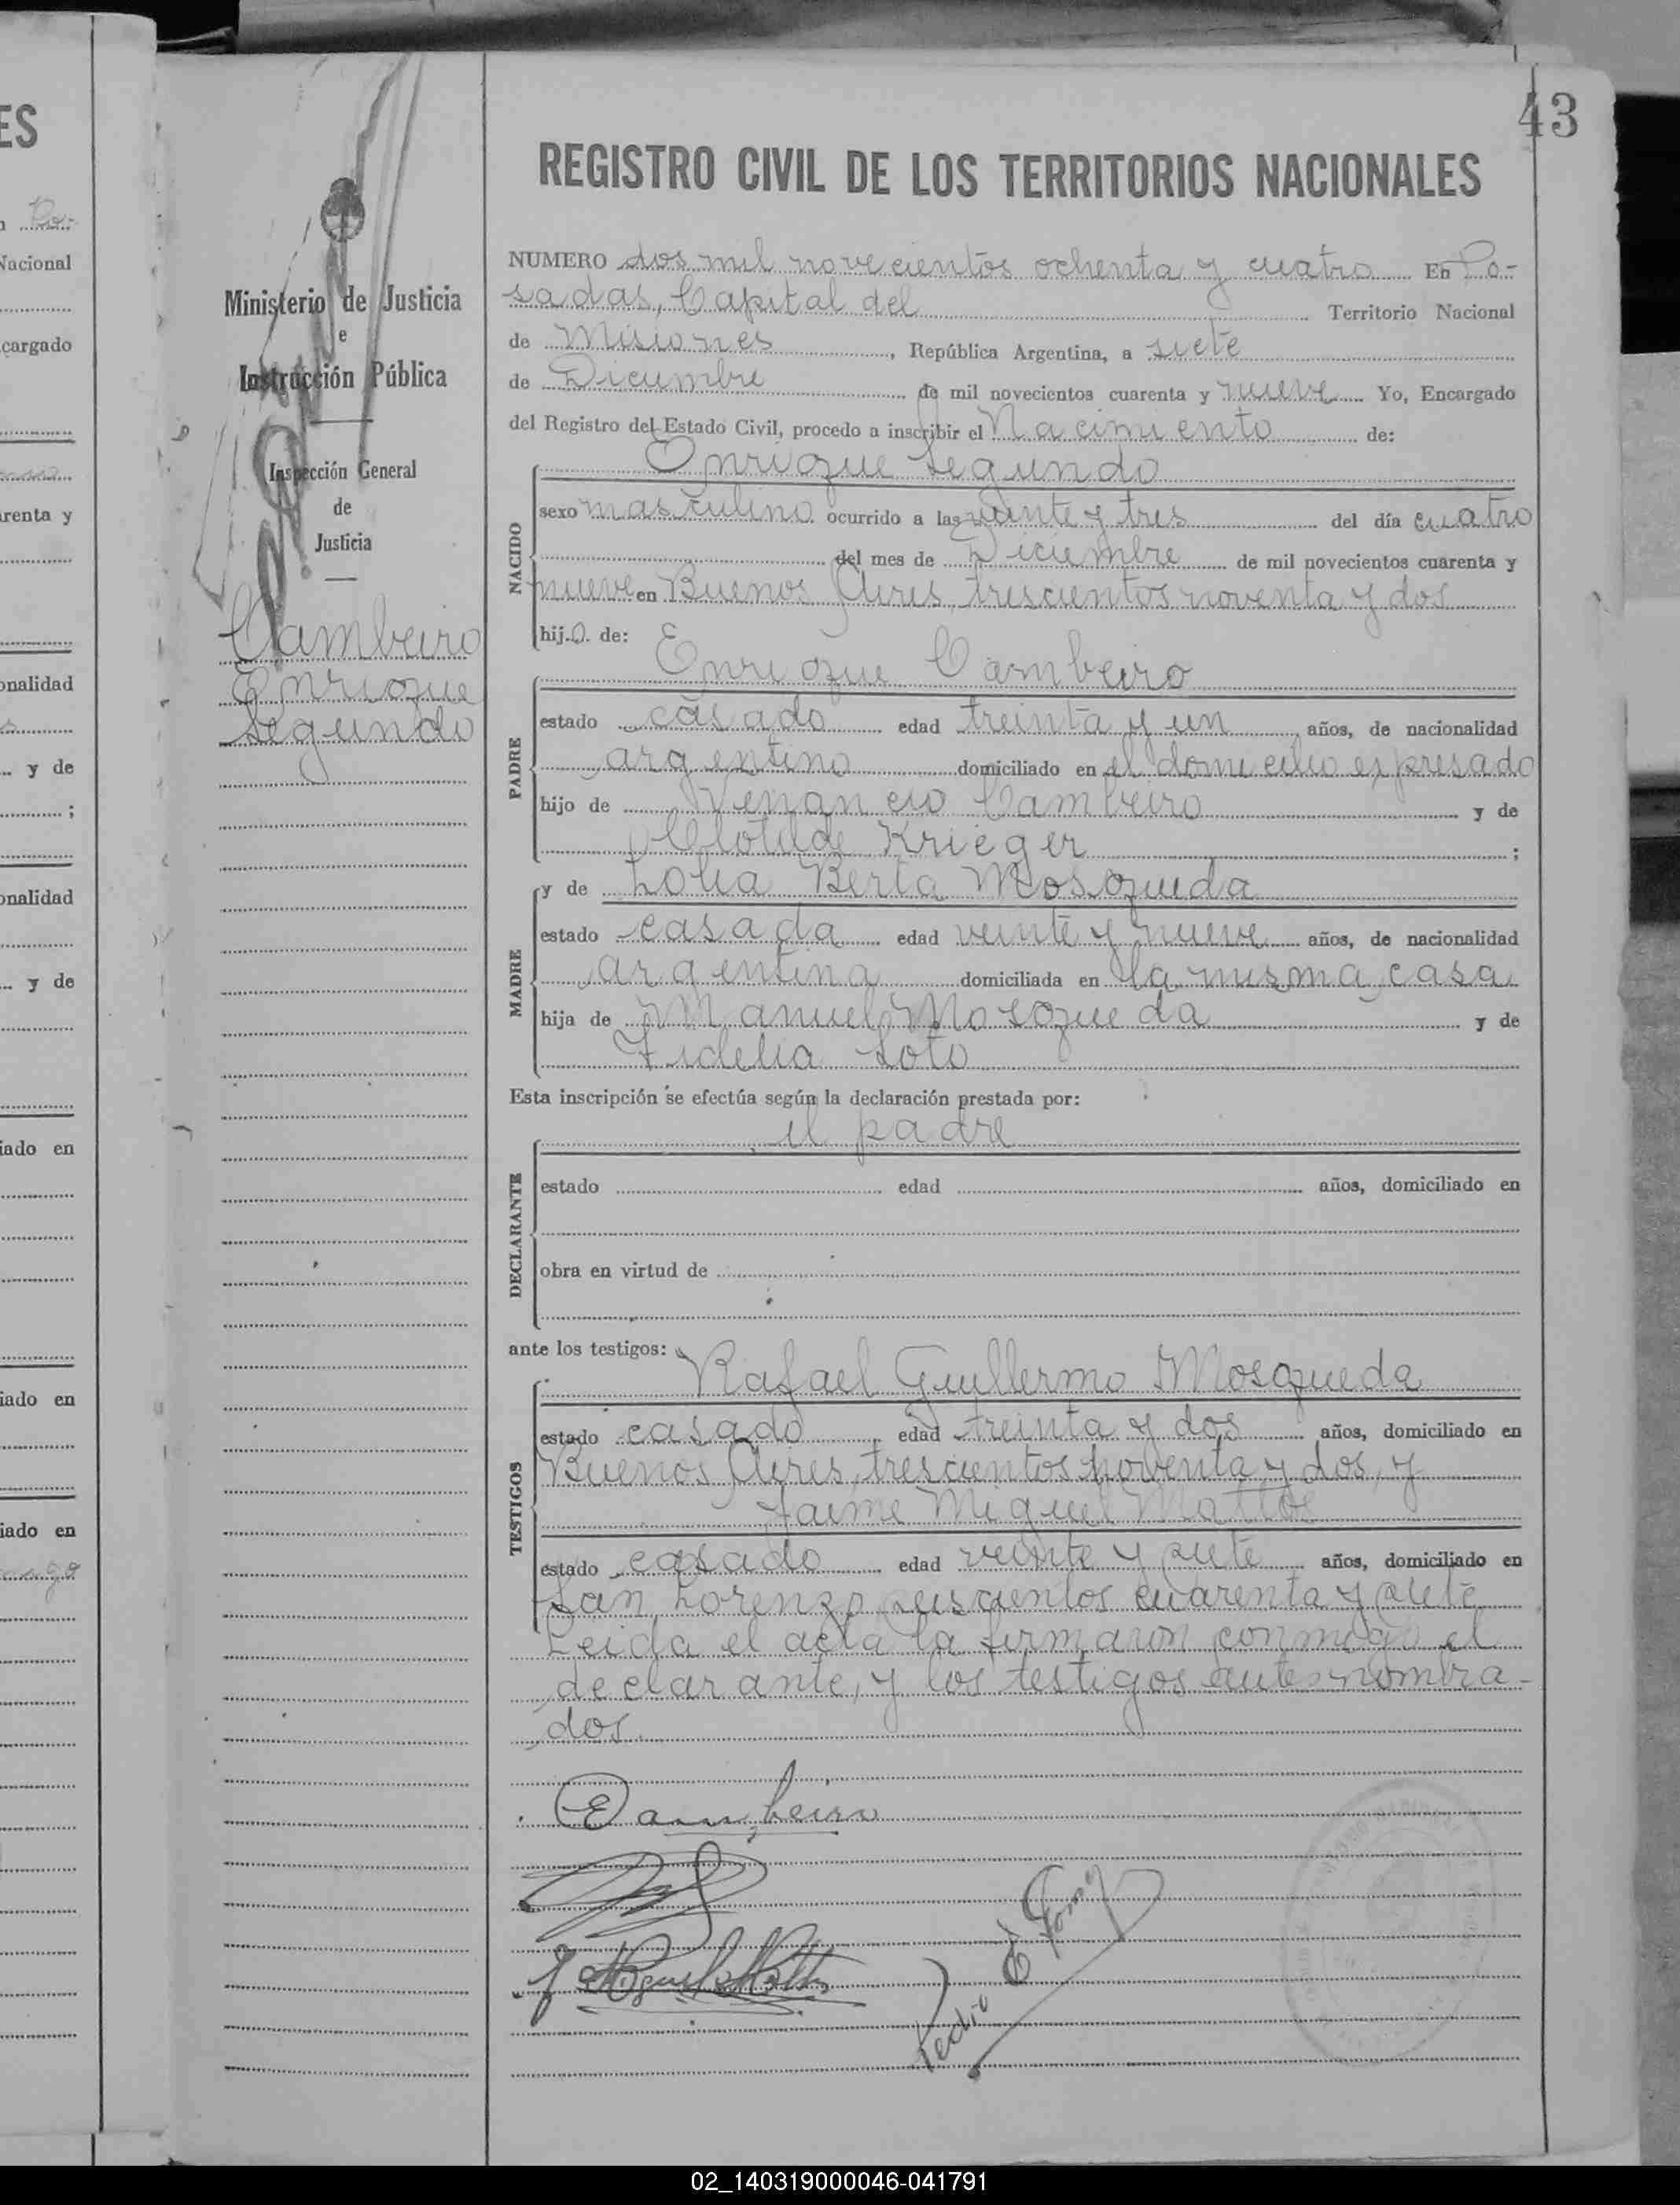 43
REGISTRO CIVIL DE LOS TERRITORIOS NACIONALES
Ministerio de Justicia
e
Instrucción Pública
Inspección General
de
Justicia
Cambeiro
Enrique
Segundo
NUMERO dos mil novecientos ochenta y cuatro En Po-
sadas, Capital del Territorio Nacional
de Misiones, República Argentina, a siete
de Diciembre de mil novecientos cuarenta y nueve Yo, Encargado
del Registro del Estado Civil, procedo a inscribir el Nacimiento de:
NACIDO
Enrique Segundo
sexo masculino ocurrido a las veinte y tres del día cuatro
del mes de Diciembre de mil novecientos cuarenta y
nueve en Buenos Aires, trescientos noventa y dos
hijo de:
PADRE
Enrique Cambeiro
estado casado edad treinta y un años, de nacionalidad
argentino domiciliado en el domicilio expresado
hijo de Venancio Cambeiro y de
Clotilde Krieger ;
MADRE
y de Lolia Berta Mosqueda
estado casada edad veinte y nueve años, de nacionalidad
argentina domiciliada en la misma casa
hija de Manuel Mosqueda y de
Fidelia Soto
Esta inscripción se efectúa según la declaración prestada por:
DECLARANTE
el padre
estado edad años, domiciliado en
obra en virtud de
ante los testigos:
TESTIGOS
Rafael Guillermo Mosqueda
estado casado edad treinta y dos años, domiciliado en
Buenos Aires, trescientos noventa y dos, y
Jaime Miguel Mattos
estado casado edad veinte y siete años, domiciliado en
San Lorenzo seiscientos cuarenta y siete
Leida el acta la firmaron conmigo el
declarante, y los testigos antes nombra-
dos.
E Cambeiro
Pedro
ES
Po-
Nacional
cargado
renta y
onalidad
y de
;
onalidad
y de
iado en
iado en
iado en
02_140319000046-041791